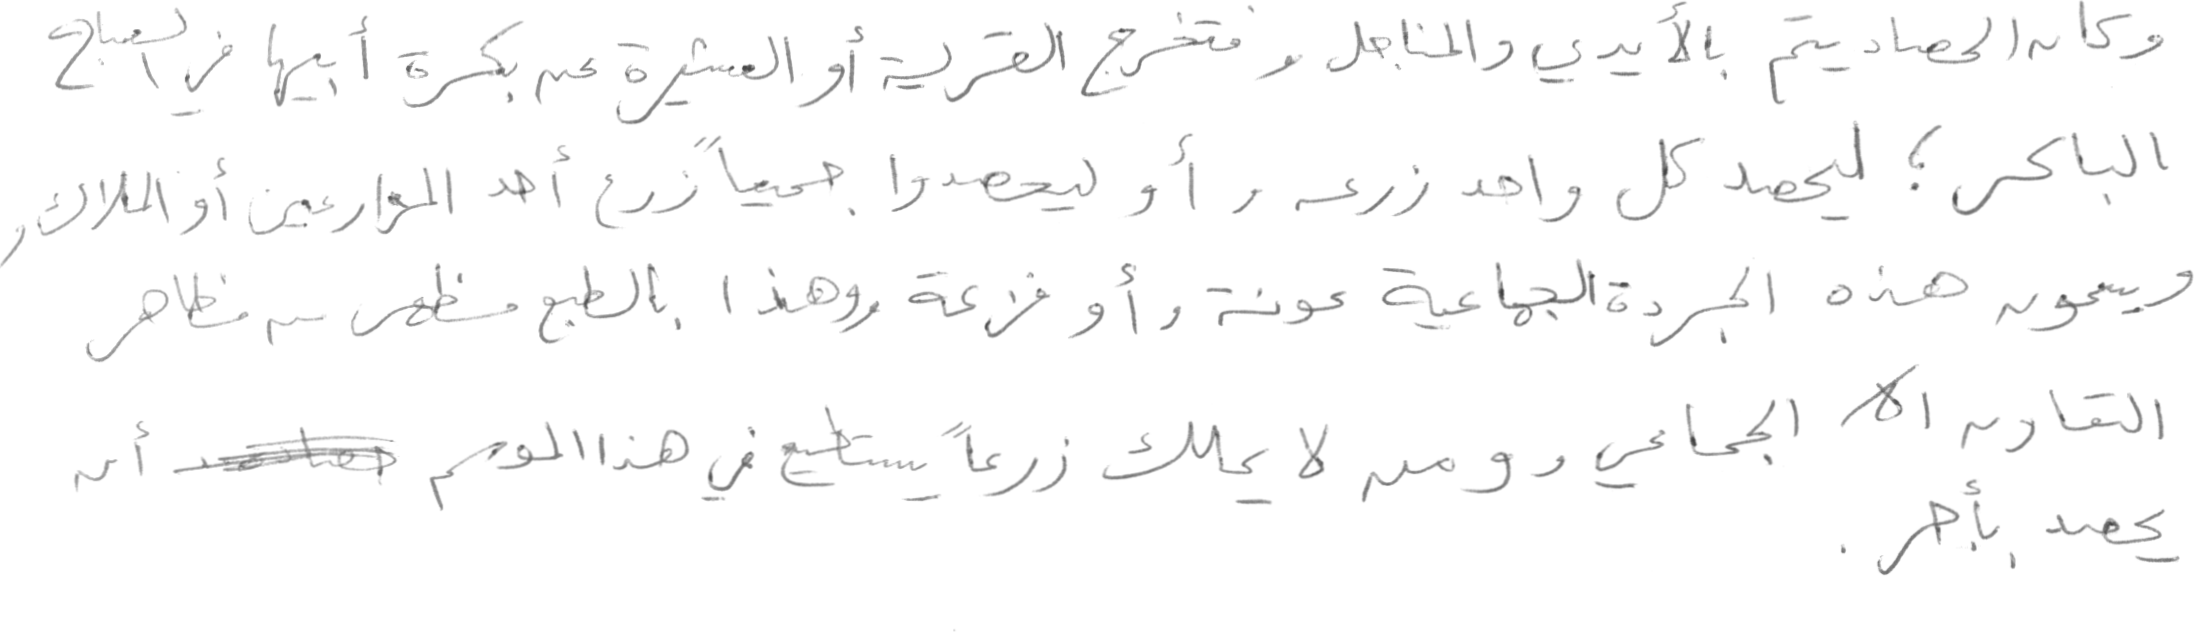 وكان الحصاد يتم بالأيدي والمناجل، فتخرج القرية أو العشيرة عن بكرة أبيها في الصباح
الباكر؛ ليحصد كل واحد زرعه، أو ليحصدوا جميعاً زرع أحد المزارعين أو الملاك،
ويسمون هذه الجردة الجماعية عونة، أو فزعة، وهذا بالطبع مظهر من مظاهر
التعاون الجماعي، ومن لا يملك زرعاً يستطيع في هذا الموسم أن
يحصد بأجر.